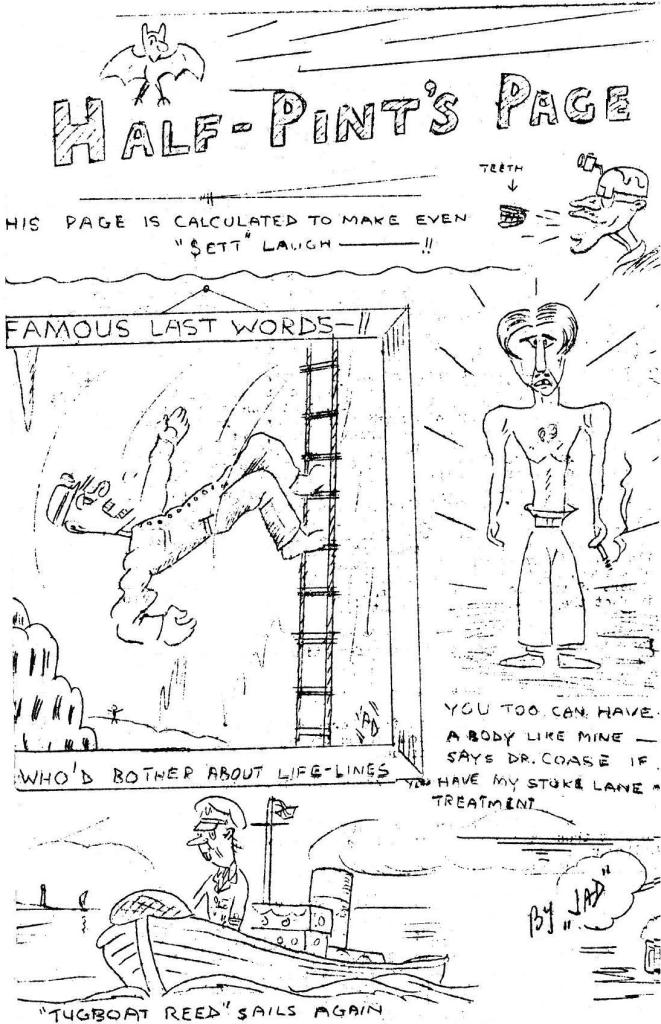 HALF-PINT'S PAGE
TEETH
HIS PAGE IS CALCULATED TO MAKE EVEN
"SETT" LAUGH ———!!
FAMOUS LAST WORDS—!!
JAD
WHO'D BOTHER ABOUT LIFE-LINES
YOU TOO CAN HAVE
A BODY LIKE MINE —
SAYS DR. COASE IF
YOU HAVE MY STOKE LANE
TREATMENT
BY "JAD"
"TUGBOAT REED" SAILS AGAIN